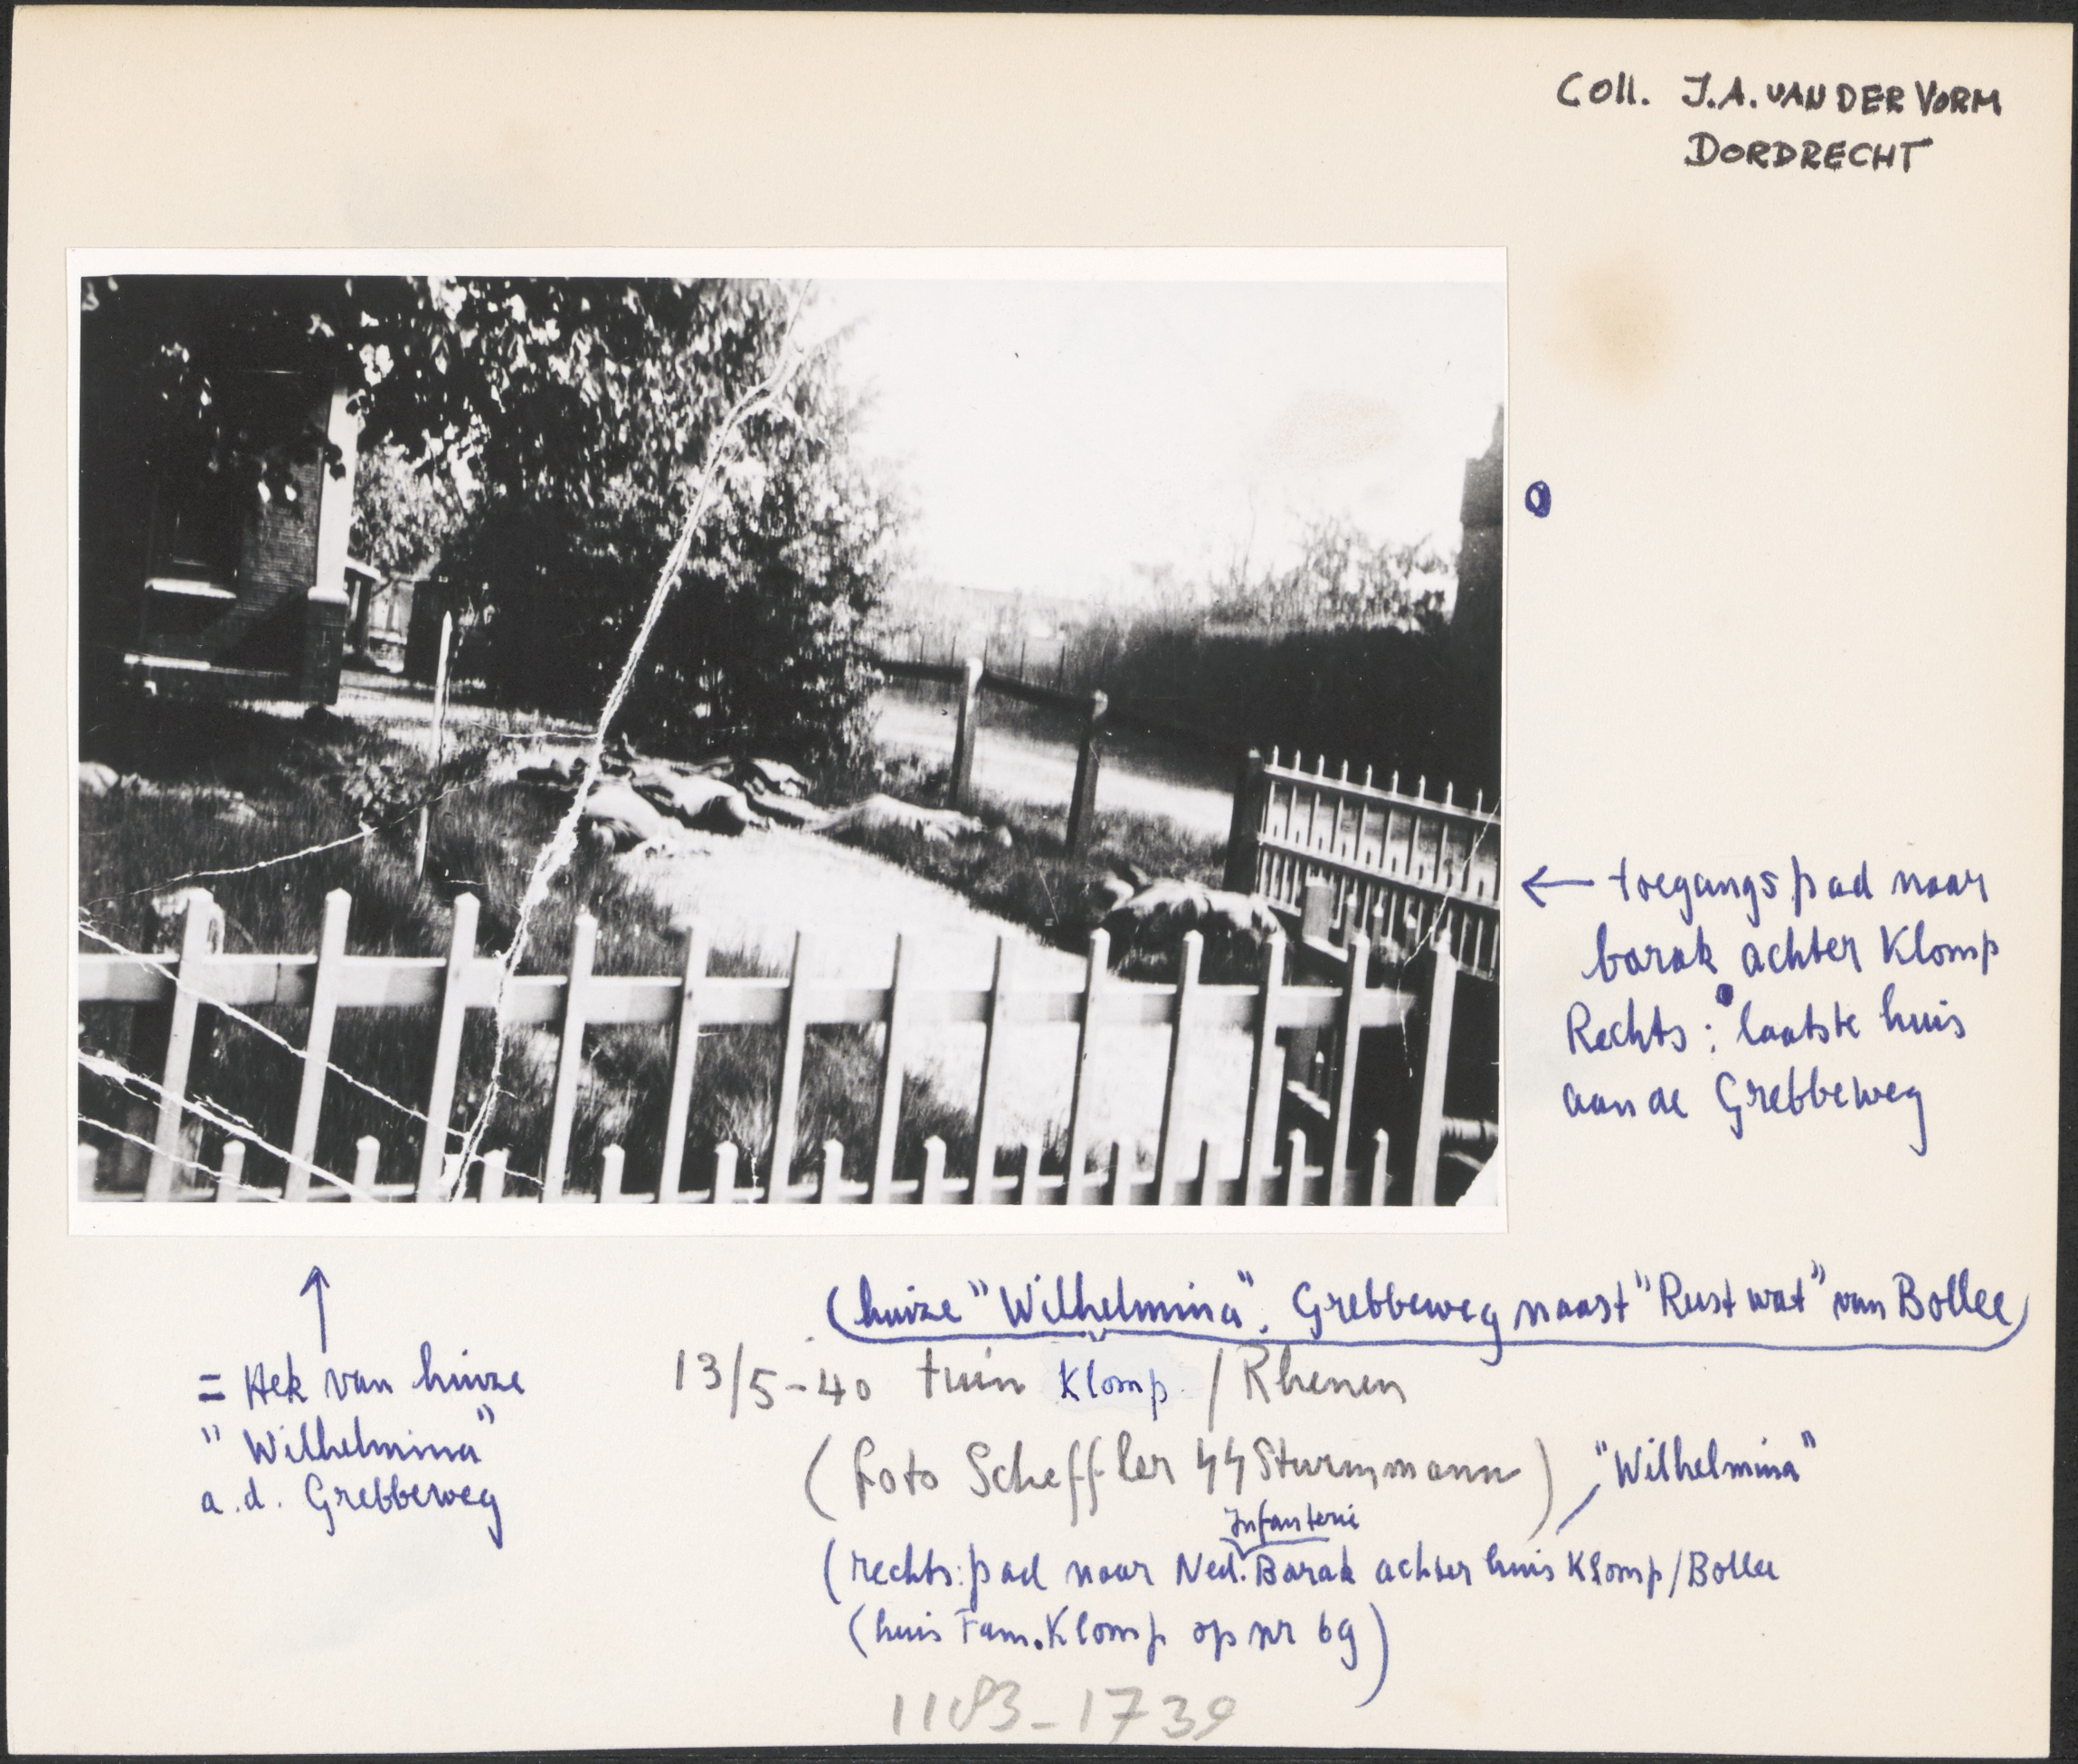 Coll. J.A. VAN DER VORM
DORDRECHT
← toegangspad naar
barak achter Klomp
Rechts: laatste huis
aan de Grebbeweg
(huize "Wilhelmina". Grebbeweg naast "Rust wat" van Bollee)
= Hek van huize
"Wilhelmina"
a.d. Grebbeweg
13/5-40 tuin Klomp / Rhenen
(foto Scheffler SS Sturmmann)
"Wilhelmina"
Infanterie
(rechts: pad naar Ned. Barak achter huis Klomp/Bollee
(huis Fam. Klomp op nr 69)
1183-1739